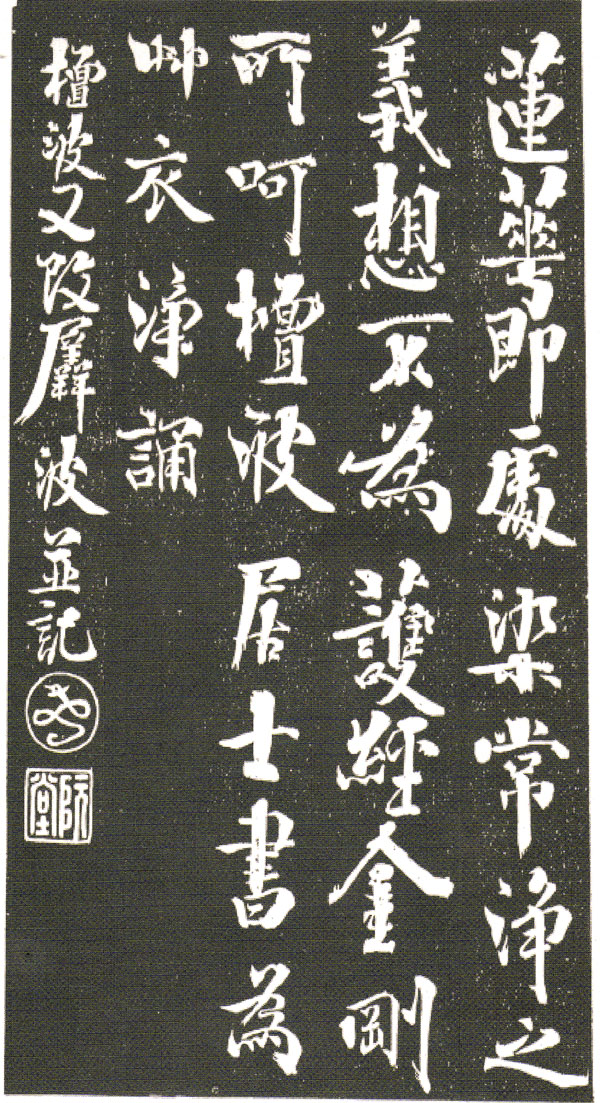 蓮華即處染常淨之
義想不為護經金剛
所呵檀波居士書為
帥衣淨誦
檀波又改羼波並記
阮堂